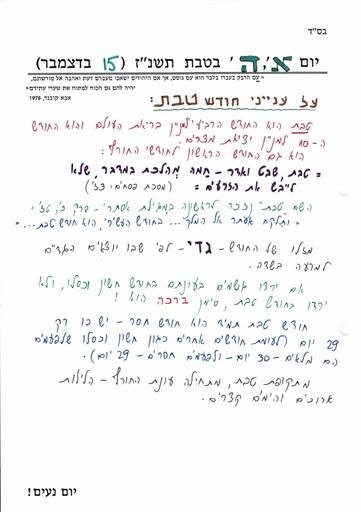 בס"ד
יום א', ה' בטבת תשנ"ז (15 בדצמבר)
"עם הדבק בעברו בלבד הוא עם גוסס, אך אם היהודים ישאבו מעברם דעת ואהבה אל מורשתם,
יהיה להם גם הכוח לפתוח את שערי עתידם"
אבא קובנר, 1978
על ענייני חודש טבת:
טבת הוא החודש הרביעי למנין בריאת העולם והוא החודש
ה-10 למנין יציאת מצרים.
הוא גם החודש הראשון לחודשי החורף:
"טבת, שבט ואדר - חמה מהלכת במדבר, שלא
לייבש את הזרעים" (מסכת פסחים צד')
השם "טבת" נזכר לראשונה במגילת אסתר - פרק ב', טז':
"ותלקח אסתר אל המלך... בחודש העשירי, הוא חודש טבת..."
מזלו של החודש - גדי - לפי שבו יוצאים הגדיים
למרעה בשדה.
אם ירדו גשמים בעונתם בחודש חשון וכסלו, ולא
ירדו בחודש טבת, סימן ברכה הוא!
חודש טבת תמיד הוא חודש חסר - יש בו רק
29 יום (לעומת חודשים אחרים כגון חשון וכסלו שלפעמים
הם מלאים - 30 יום - ולפעמים חסרים - 29 יום).
מתקופת טבת, מתחילה עונת החורף - הלילות
ארוכים והימים קצרים.
יום נעים!